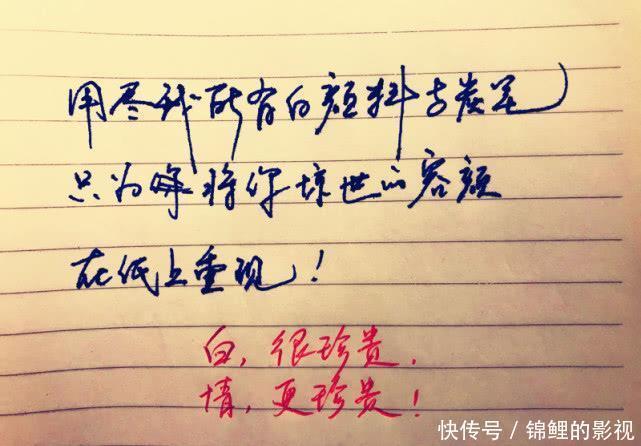 用尽我所有白颜料与炭笔
只为将你惊世的容颜
在纸上重现！
白，很珍贵.
情，更珍贵！
快传号 / 锦鲤的影视